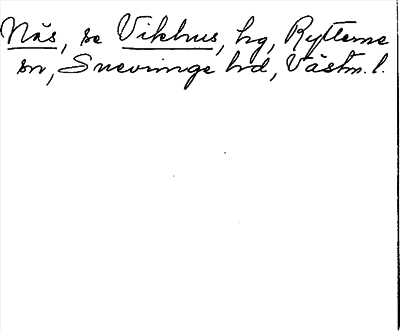 Näs, se Vikhus, hg, Rytterne
sn, Snevringe hd, Västm. l.